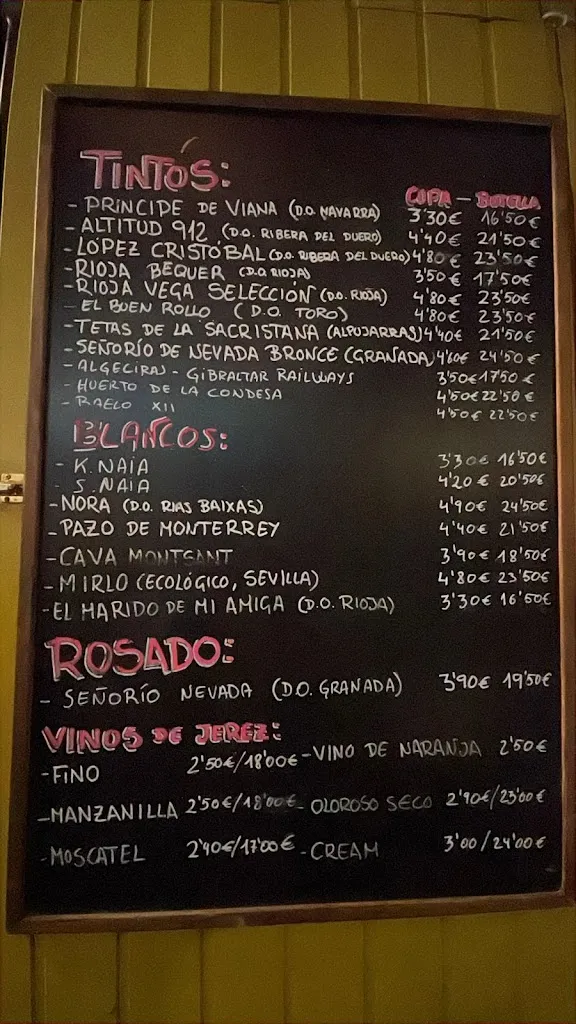 TINTOS:
COPA - BOTELLA
- PRÍNCIPE DE VIANA (D.O. NAVARRA) 3'30€ 16'50€
- ALTITUD 912 (D.O. RIBERA DEL DUERO) 4'40€ 21'50€
- LÓPEZ CRISTÓBAL (D.O. RIBERA DEL DUERO) 4'80€ 23'50€
- RIOJA BEQUER (D.O. RIOJA) 3'50€ 17'50€
- RIOJA VEGA SELECCIÓN (D.O. RIOJA) 4'80€ 23'50€
- EL BUEN ROLLO (D.O. TORO) 4'80€ 23'50€
- TETAS DE LA SACRISTANA (ALPUJARRAS) 4'40€ 21'50€
- SEÑORÍO DE NEVADA BRONCE (GRANADA) 4'60€ 24'50€
- ALGECIRAS - GIBRALTAR RAILWAYS 3'50€ 17'50€
- HUERTO DE LA CONDESA 4'50€ 22'50€
- RAELO XII 4'50€ 22'50€
BLANCOS:
- K. NAIA 3'30€ 16'50€
- S. NAIA 4'20€ 20'50€
- NORA (D.O. RIAS BAIXAS) 4'90€ 24'50€
- PAZO DE MONTERREY 4'40€ 21'50€
- CAVA MONTSANT 3'90€ 18'50€
- MIRLO (ECOLÓGICO, SEVILLA) 4'80€ 23'50€
- EL MARIDO DE MI AMIGA (D.O. RIOJA) 3'30€ 16'50€
ROSADO:
- SEÑORÍO NEVADA (D.O. GRANADA) 3'90€ 19'50€
VINOS DE JEREZ:
- FINO 2'50€/18'00€ - VINO DE NARANJA 2'50€
- MANZANILLA 2'50€/18'00€ - OLOROSO SECO 2'90€/23'00€
- MOSCATEL 2'40€/17'00€ - CREAM 3'00/24'00€